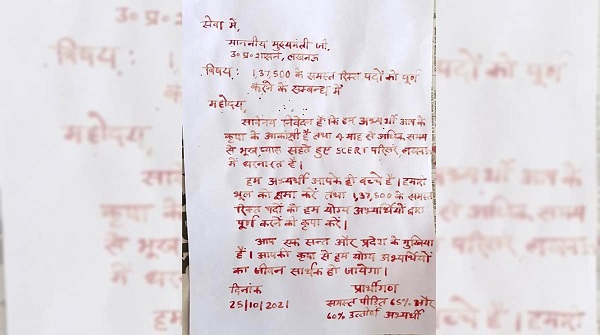 सेवा में,
माननीय मुख्यमंत्री जी,
उ० प्र० शासन, लखनऊ
विषय: 1,37,500 के समस्त रिक्त पदों को पूर्ण
करने के सम्बन्ध में
महोदय,
सविनय निवेदन है कि हम अभ्यर्थी आप के
कृपा के आकांक्षी हैं तथा 4 माह से अधिक समय
से भूख प्यास सहते हुए SCERT परिसर, लखनऊ
में धरनारत हैं।
हम अभ्यर्थी आपके ही बच्चे हैं। हमारी
भूल को क्षमा करें तथा 1,37,500 के समस्त
रिक्त पदों को हम योग्य अभ्यर्थियों द्वारा
पूर्ण करने की कृपा करें।
आप एक सन्त और प्रदेश के मुखिया
हैं। आपकी कृपा से हम योग्य अभ्यर्थियों
का जीवन सार्थक हो जायेगा।
दिनांक प्रार्थीगण
25/10/2021 समस्त पीड़ित 65% और
60% उत्तीर्ण अभ्यर्थी